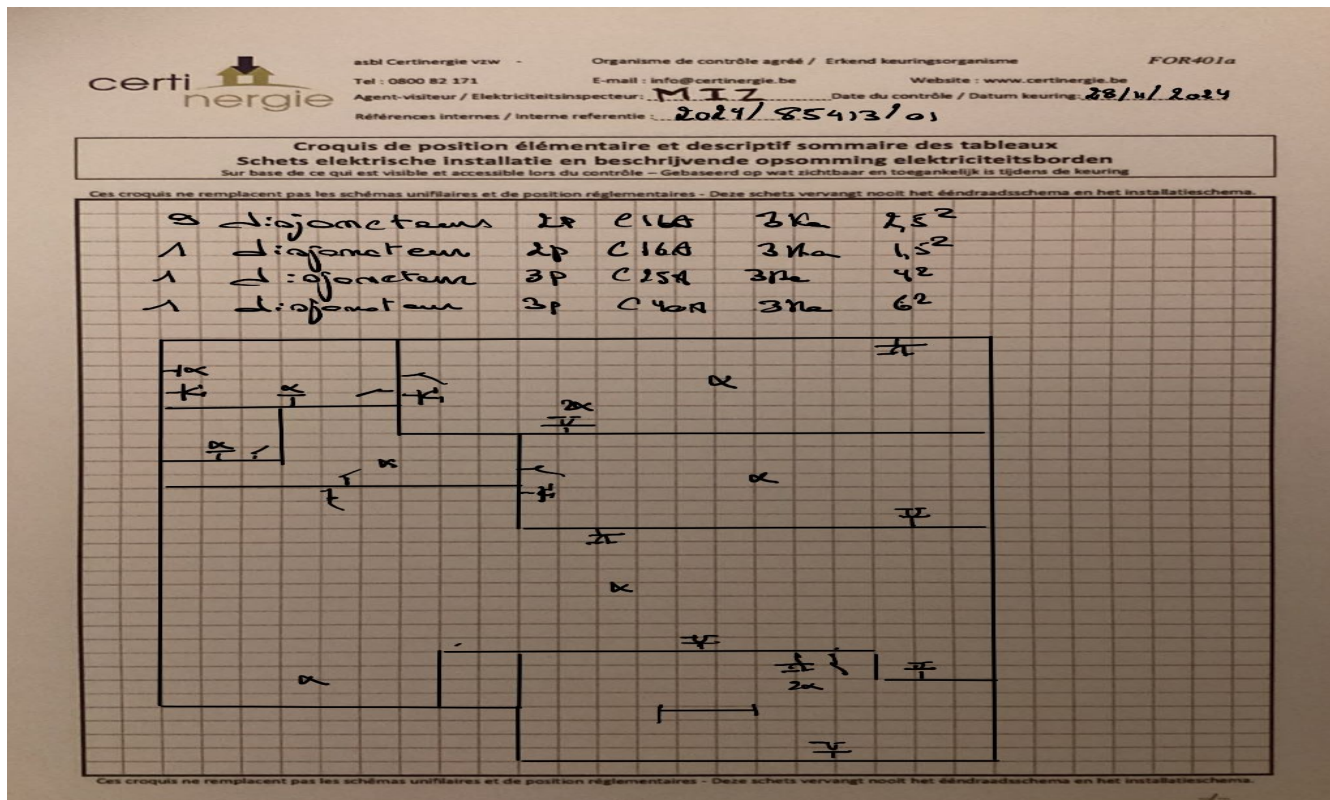 certinergie
asbl Certinergie vzw - Organisme de contrôle agréé / Erkend keuringsorganisme FOR401a
Tel : 0800 82 171 E-mail : info@certinergie.be Website : www.certinergie.be
Agent-visiteur / Elektriciteitsinspecteur: MIZ Date du contrôle / Datum keuring: 28/11/2024
Références internes / Interne referentie : 2024/85413/01
Croquis de position élémentaire et descriptif sommaire des tableaux
Schets elektrische installatie en beschrijvende opsomming elektriciteitsborden
Sur base de ce qui est visible et accessible lors du contrôle – Gebaseerd op wat zichtbaar en toegankelijk is tijdens de keuring
Ces croquis ne remplacent pas les schémas unifilaires et de position réglementaires - Deze schets vervangt nooit het ééndraadsschema en het installatieschema.
disjoncteurs 2P C16A 3Ka 2,5²
1 disjoncteur 2p C16A 3Ka 1,5²
1 disjoncteur 3P C25A 3Ka 4²
1 disjoncteur 3p C40A 3Ka 6²
2x
2x
Ces croquis ne remplacent pas les schémas unifilaires et de position réglementaires - Deze schets vervangt nooit het ééndraadsschema en het installatieschema.